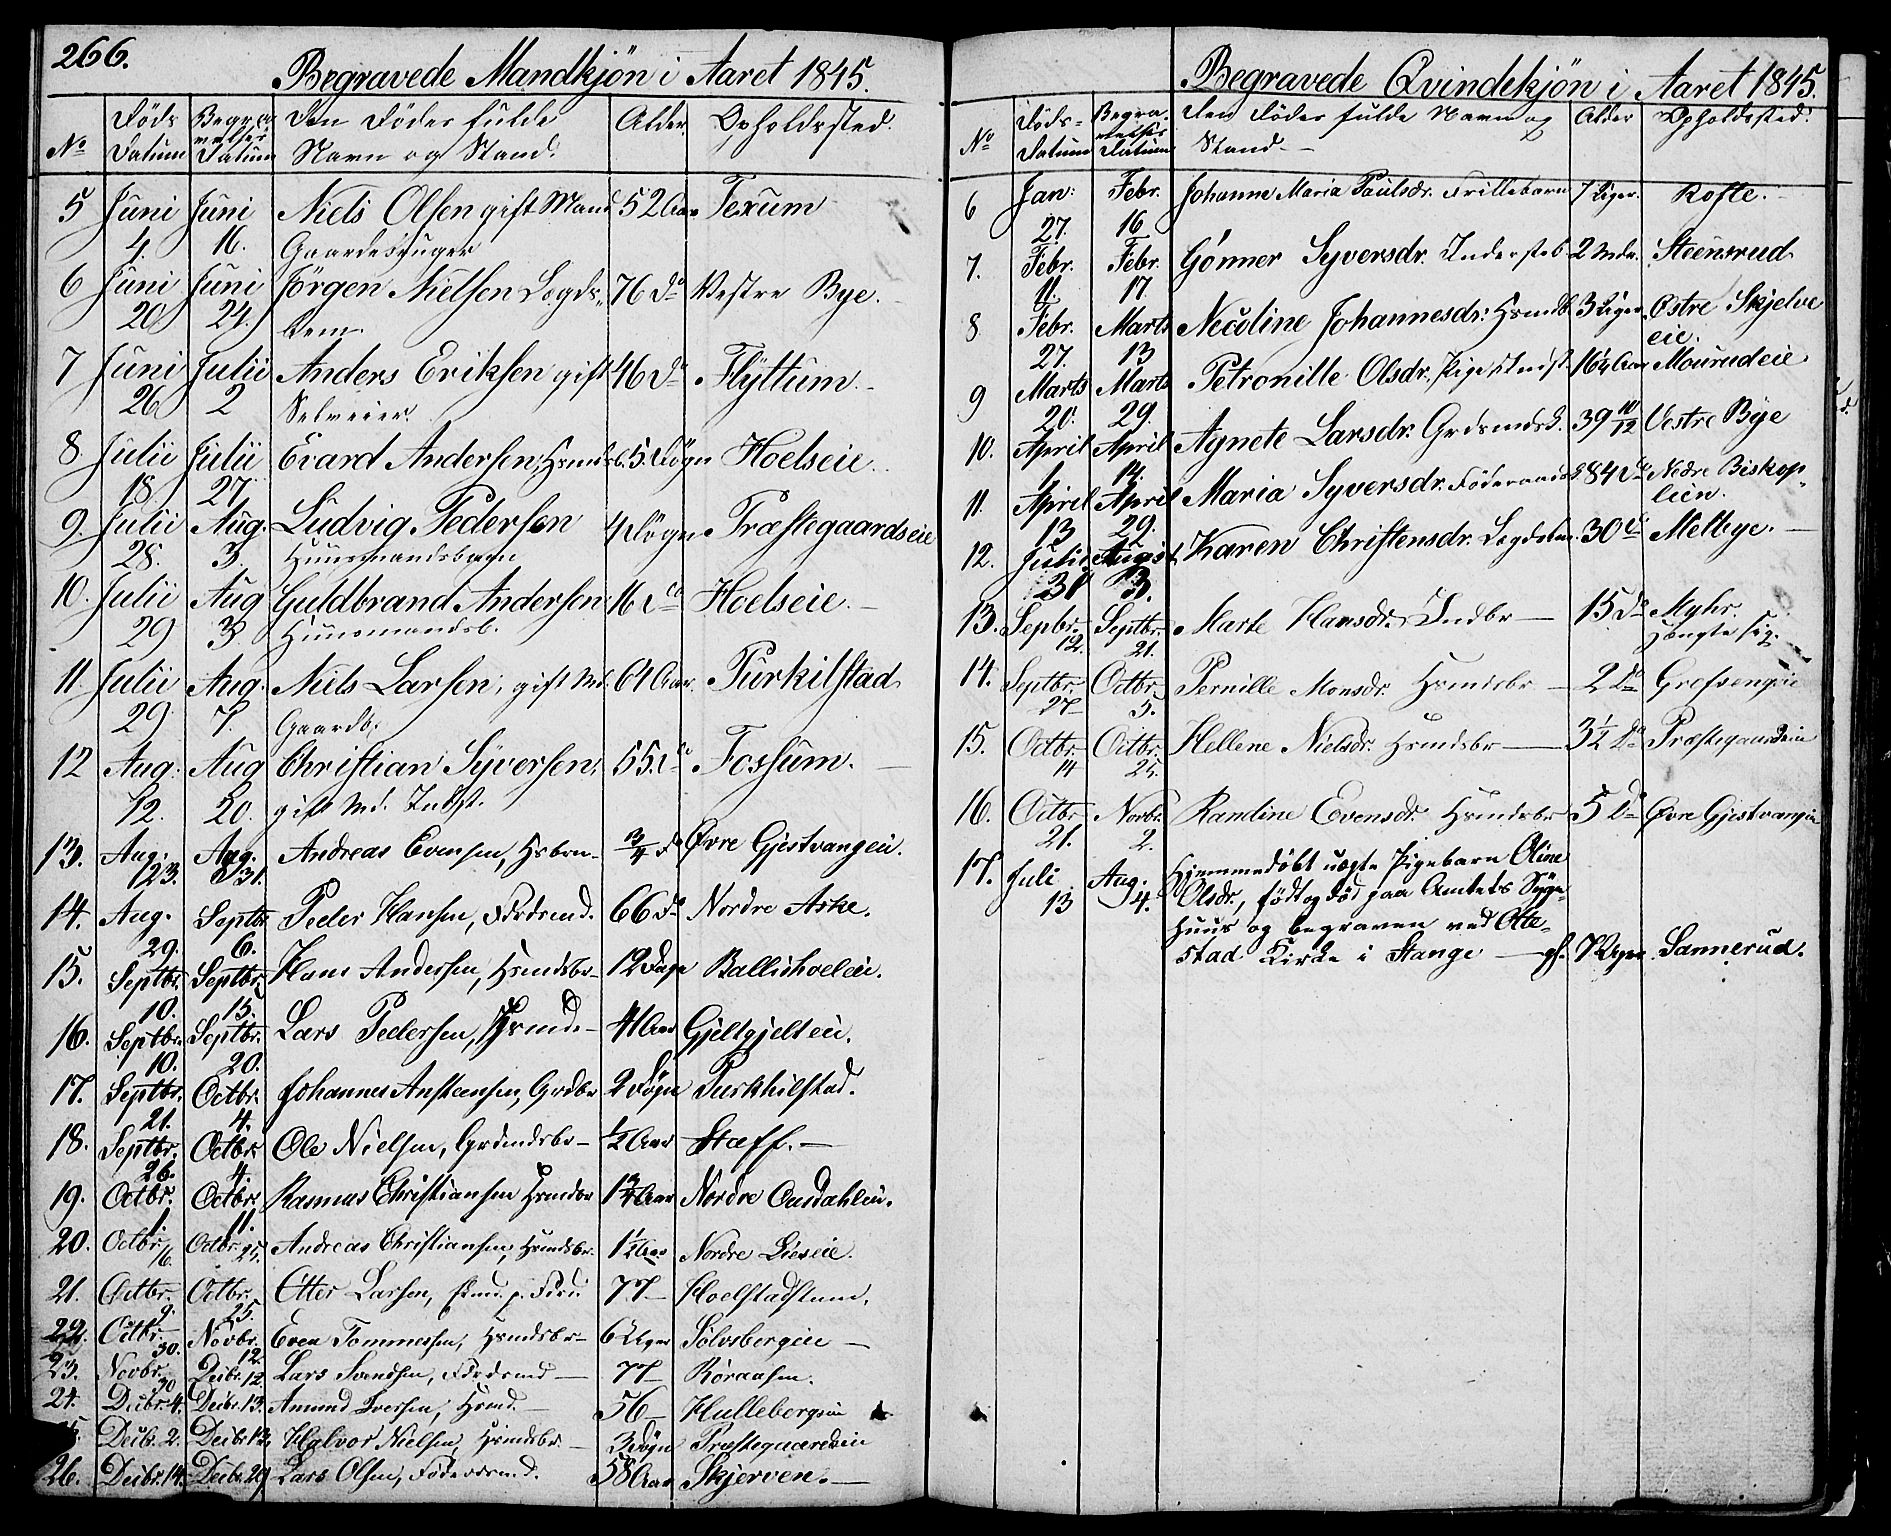 266.
Begravede Mandkjön i Aaret 1845.
No Döds Datum Begravelses Datum Den Dödes fulde Navn og Stand. Alder. Opholdssted.
5 Juni 4. Juni 16. Niels Olsen gift Mand 52 Aar Texum
Gaardbruger
6 Juni 20 Juni 24. Jörgen Nielsen Legds- 76 Do Vestre Bye.
lem
7 Juni 26 Julii 2 Anders Eriksen gift 46 Do Flyttum.
Selveier.
8. Julii 18. Julii 27. Evard Andersen, Hsmdsb. 5. Døgn Hoelseie.
9. Julii 28. Aug. 3. Ludvig Pedersen 4 Døgn Præstegaardseie
Huusmandsbarn
10. Julii 29 Aug 3 Guldbrand Andersen 16 do Hoelseie.
Huusmandsb.
11. Julii 29. Aug. 7. Niels Larsen, gift Md. 64 Aar. Purkilstad
Gaardb.
12 Aug. 12. Aug 20. Christian Syversen, 55. do Fossum.
gift Md. Indst.
13. Aug. 23. Aug. 31. Andreas Evensen, Hsbrn 3/4 Do Øvre Gjestvangeie.
14. Aug. 29. Septbr 6. Peder Hansen, Fdrdsmd. 66 Do Nordre Aske.
15. Septbr. 10. Septbr. 15. Hans Andersen, Hsmdsbr 12 Dage Ballishoeleie.
16. Septbr. 10. Septbr. 20. Lars Pedersen, Hsmd. 41 Aar Gjeltgjelteie.
17. Septbr. 21. Octbr. 4. Johannes Anstensen, Grdbr 2 Døgn Purkhilstad.
18. Septbr. 26. Octbr. 4. Ole Nielsen, Grdmdsbr 1/2 Aar Stæff.
19. Octbr. 1. Octbr. 11. Rasmus Christiansen Hsmdsbr 1 3/4 Aar Nordre Ousdahleie.
20. Octbr. 16. Octbr. 25. Andreas Christiansen, Hsmdsbr. 1 1/2 Aar Nordre Lieseie.
21. Octbr. 9. Octbr. 25. Otter Larsen, 77 Hoelstadstuen.
22. Octbr. 30. Novbr. 12. Even Tommessen, Hsmdsbr 6 Uger Sølvsbergeie
23. Novbr. 30 Decbr. 12. Lars Svendsen, Fdrdsmd 77 Røraasen.
24. Decbr. 4. Decbr. 13. Amund Iversen, Hsmd. 56 Hullebergseie
Decbr. 2. Decbr. 13. Halvor Nielsen, Hsmdsbr. 3 Døgn Præstegaardseie
26. Decbr. 14. Decbr. 29 Lars Olsen, Føderdsmd. 58 Aar Skjerven.
Begravede Qvindekjön i Aaret 1845.
No Döds- Datum Begravelses Datum Den Dödes fulde Navn og Stand Alder Opholdssted.
6 Jan: 27. Febr. 16 Johanne Maria Paulsdr. Frillebarn 7 Uger. Kofte.
7. Febr. 11 Febr. 17 Gønner Syversdr. Inderstb 2 Mdr. Steensrud
8 Febr. 27. Marts 13 Necoline Johannesdr. Hsmdb. 3 Uger Østre Skjelve
eie.
9 Marts 20. Marts 29. Petronille Olsdr. Pige 16 1/4 Aar Mourudeie
10. April 1 April 14. Agnete Larsdr. Grdsmdsk. 39 10/12 Vestre Bye
11. April 13 April 29. Maria Syversdr. Føderaads 84 do Nedre Biskop-
lien.
12. Julii 31 August 3. Karen Christensdr. Legdslm. 30 do Melbye.
13. Sepbr. 12. Septbr. 21. Marte Hansdr. Indbr 15 Do Myhr.
Hængte sig.
14. Septbr. 27 Octbr. 5. Pernille Monsdr. Hsmdsbr 2 Do Grefsengeie
15. Octbr. 14 Octbr. 25. Hellene Nielsdr. Hsmdsbr 3 1/2 Do Præstegaardseie
16. Octbr 21. Novbr. 2. Randine Evensdr. Hsmdsbr 5 Do Øvre Gjestvangeie
17. Juli 13 Aug. 4. Hjemmedøbt uægte Pigebarn Oline
Olsdr., født og død paa Amtets Syge-
huus og begraven ved Otte-
stad Kirke i Stange 7 Uger Sannerud.